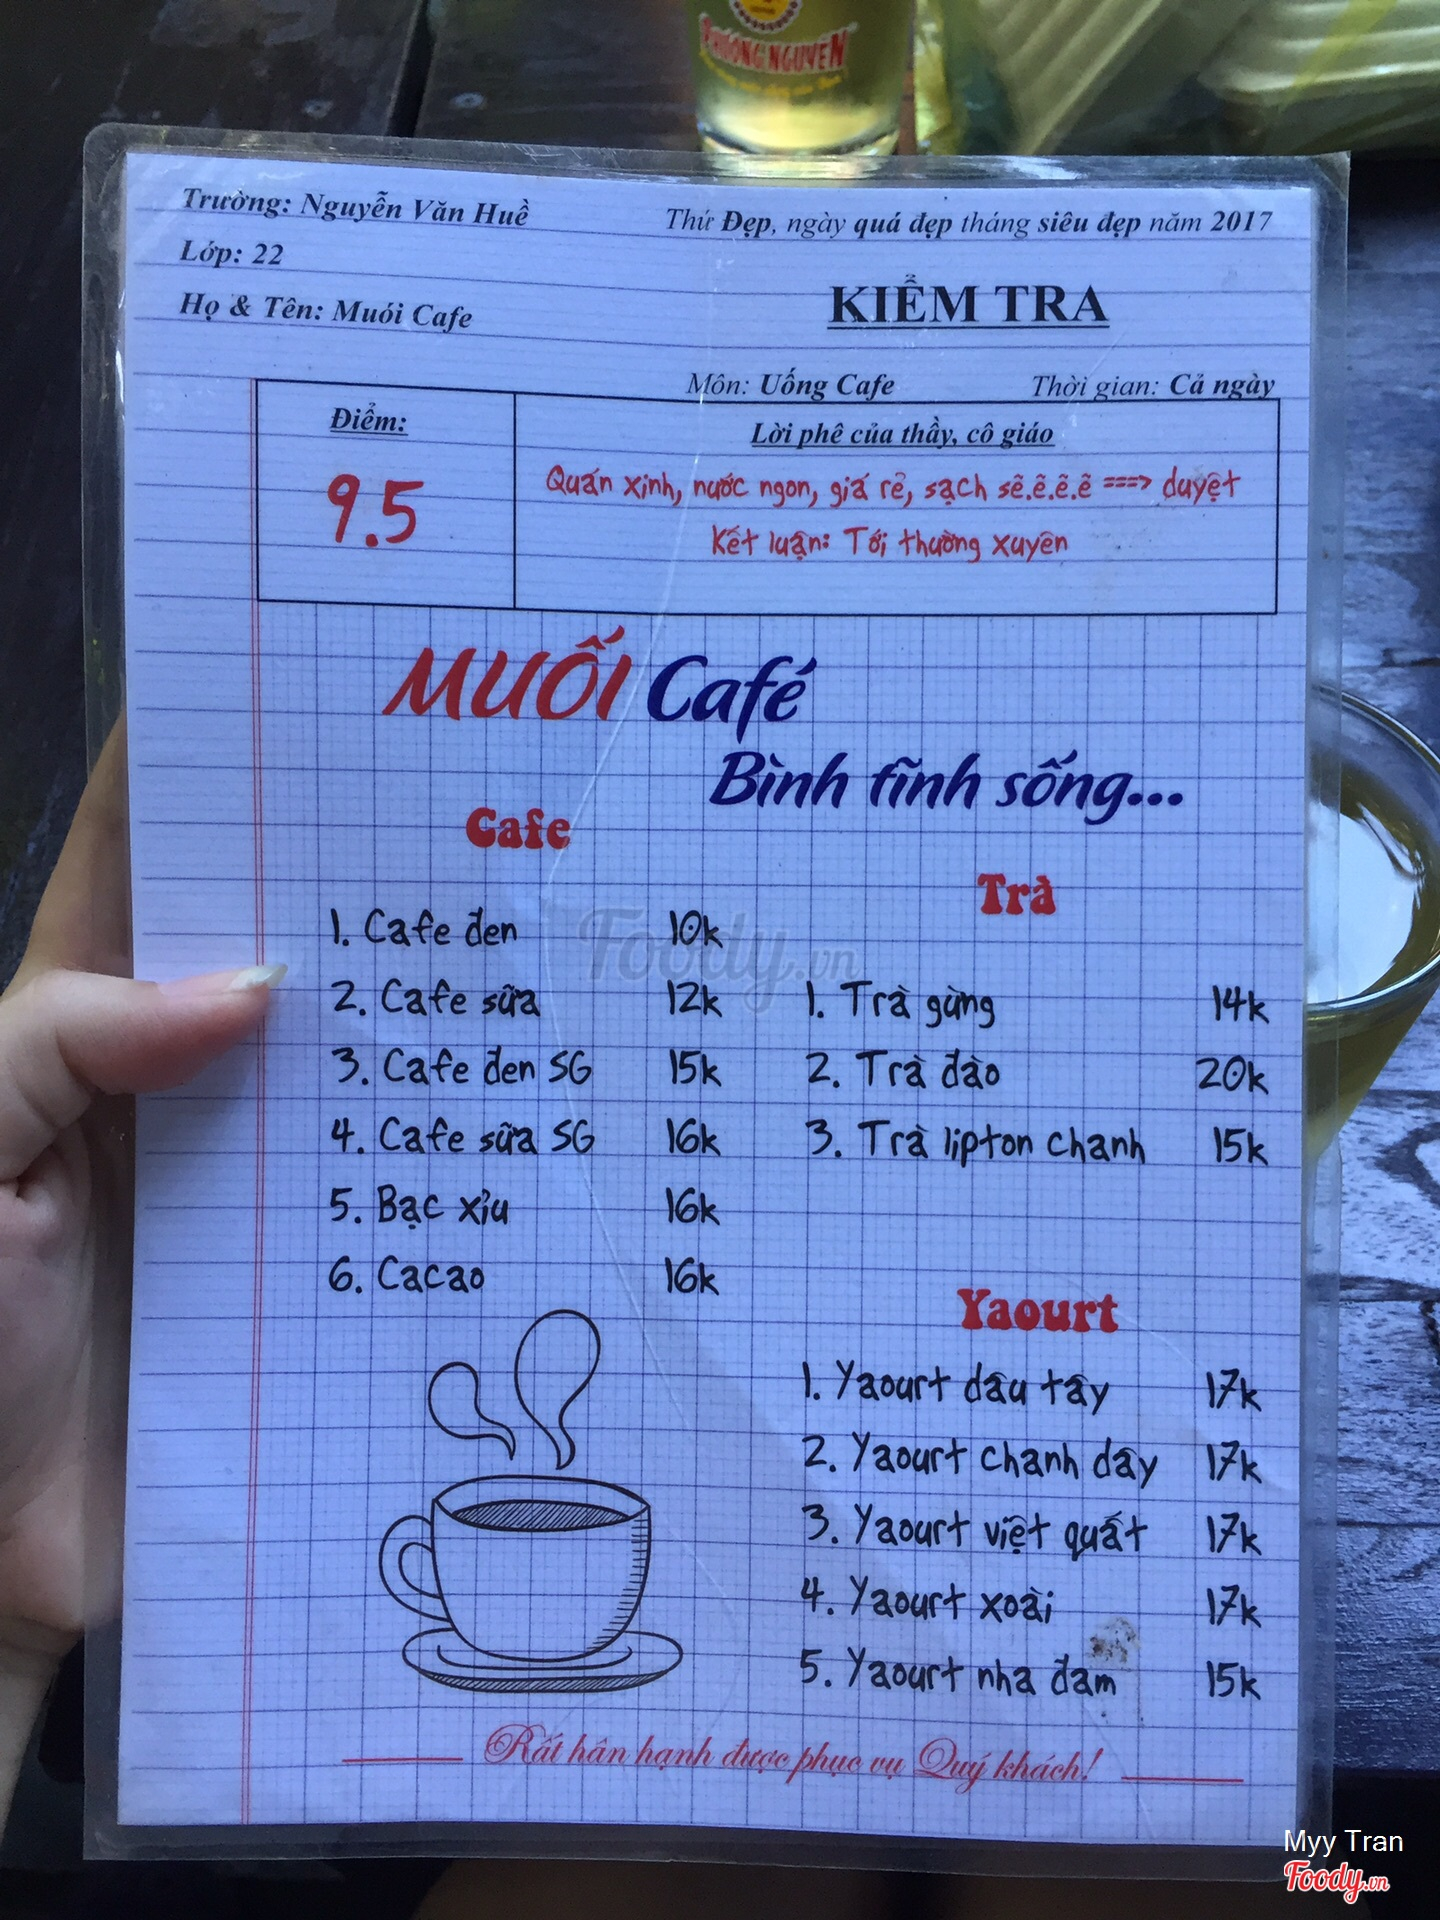 PHƯƠNG NGUYÊN
Trường: Nguyễn Văn Huề
Thứ Đẹp, ngày quá đẹp tháng siêu đẹp năm 2017
Lớp: 22
Họ & Tên: Muói Cafe
KIỂM TRA
Môn: Uống Cafe
Thời gian: Cả ngày
Điểm:
9.5
Lời phê của thầy, cô giáo
Quán xinh, nước ngon, giá rẻ, sạch sẽ.ẽ.ẽ.ẽ ===> duyệt
Kết luận: Tới thường xuyên
MUỐI Café
Bình tĩnh sống...
Cafe
1. Cafe đen 10k
2. Cafe sữa 12k
3. Cafe đen SG 15k
4. Cafe sữa SG 16k
5. Bạc xỉu 16k
6. Cacao 16k
Trà
1. Trà gừng 14k
2. Trà đào 20k
3. Trà lipton chanh 15k
Yaourt
1. Yaourt dâu tây 17k
2. Yaourt chanh dây 17k
3. Yaourt việt quất 17k
4. Yaourt xoài 17k
5. Yaourt nha đam 15k
Rất hân hạnh được phục vụ Quý khách!
Foody.vn
Myy Tran
Foody.vn